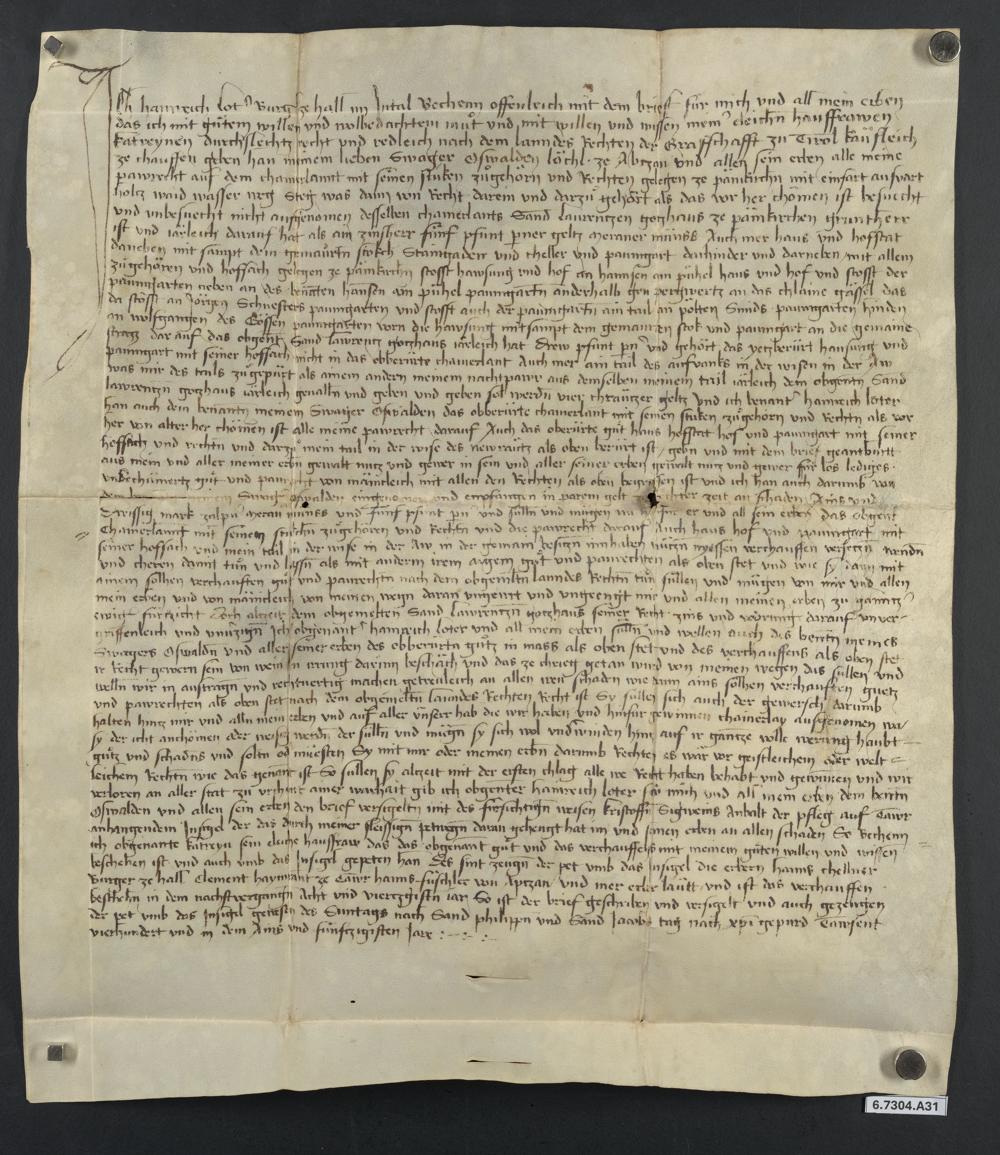 Ich hainreich lot' Burg' ze hall im Intal Vechenn offenleich mit dem brieff für mich und all mein erben
das ich mit gůtem willen und wolbedachtem můt und mit willen und wissen meine' eleichn hausfrawen
katreynen durchslechts recht und redleich nach dem lanndes Rechten der Graffschafft zu Tirol kaüfleich
ze chauffen geben han meinem lieben Swager Oswalden löchl ze Abtzan und allen sein erben alle meine
pawrecht auf dem chamerlannt mit seinen stuken zůgehörn und Rechten gelegen ze pämkirchn mit einfart ausvart
holtz waid wasser weg Steg was dann von Recht darein und darzů gehört als das vor her chömen ist besuecht
und unbesuecht nicht ausgenomen desselben chamerlants Sand laurentzen gotzhaus ze pämkirchen gruntherr
ist und iärleich darauf hat als ain zinsherr fünf pfunt perner geltz meraner münss Auch mer haus und hofstat
daneben mit sampt dem gemaürtn stokch Stamgadem und cheller und paumgart dahinder und darneben mit allem
zůgehören und hoffach gelegen ze pämkirchn stosst hawsung und hof an hannsen am pühel haus und hof und stosst der
paumgarten neben an des benanten hansen am pühel paumgartn anderhalb gen pergwertz an das chlaine gässel das
da stösst an Jörigen Schuesters paumgarten und stosst auch der paumgartn ain tail an pölten Smids paumgarten hinden
an wolfgangen des Gössen paumgarten vorn die hawsung mitsampt dem gemaurten stok und paumgart an die gemaine
strazz darauf das obgent Sand lawrentz gotzhaus iärleich hat drew pfunt pn' und gehört das yetzberürt hausung und
paumgart mit seiner hoffach nicht in das obberürte chamerlant Auch mer ain tail des auffangs in der wisen in der Aw
was mir des tails zůgepürt als ainem andern meinem nachtpawr aus demselben meinem tail iärleich dem obgentn Sand
lawrentzn gotzhaus iärleich gevalln und geben und geben sol werdn vier chrawtzer geltz Und ich benant' hainreich loter
han auch dem benantn meinem Swager Oswalden das obberürte chamerlant mit seinen stuken zůgehörn und Rechtn als vor
her von alter her chömen ist alle meine pawrecht darauf Auch das oberürte gůt haus hofstat hof und paumgart mit seiner
hoffach und rechtn und darzů mein tail in der wise des newraütz als oben berürt ist gebn und mit dem brief geantwurtt
aus mein und aller meiner erbn gewalt nutz und gewer in sein und aller seiner erben gewalt nutz und gewer für los lediges
unbechümertz gůt und pawrecht von mänicleich mit allen den Rechten als oben begriffen ist und ich han auch darumb von
dem meinem Swager Oswalden eingenomen und empfangen in parem gelt rechter zeit an schaden Ains und
Dreissig mark zalper meran münss und fünf pfunt pn' und sülln und mügen er und all sein erben das obgent
Chamerlannt mit seinem stucken zůgehören und Rechtn und die pawrecht darauf Auch haus hof und paumgart mit
seiner hoffach und mein tail in der wise in der Aw in der gemain besitzn innhaben nützn niessen verchauffen versetzn wendn
und cheren damit tůn und lassn als mit andern irem aygen gůt und pawrechten als oben stet und wie sy dann mit
ainem solhen verchauften gůt und pawrechtn nach dem obgemeltn lanndes Rechtn tůn süllen und mügen von mir und allen
mein erben und von mänicleich von meinen wegn daran ungeirrt und ungeengt mir und allen meinen erben zu gäntz'
ewig' fürzicht doch altzeit dem obgemelten Sand lawrentzn gotzhaus seiner Recht zins und vodrung darauf unver-
griffenleich und unentzigñ Ich obgenant' hainreich loter und all mein erben sülln und wellen auch des bentn meines
Swagers Oswaldn und aller seiner erben des obberurtn gůtz in mass als oben stet und des verchauffens als oben stet
ir Recht gewern sein von wein in irrung darinn beschäch und das ze chrieg getan wird von meinen wegen das süllen und
welln wir in austragn und rechtvertig machen getreuleich an allen iren schaden wie dann ains solhen verchauften guetz
und pawrechten als oben stet nach dem obgemeltn lanndes Rechten Recht ist Sy süllen sich auch der gewerschaft darumb
halten hintz mir und alln mein erben und auf aller unser hab die wir haben und hinfür gewinnen chainerlay ausgenomen wa
sy der icht anchömen oder weisent werdn der sülln und mügn sy sich wol underwinden hintz auf ir gantze volle werung haubt-
gůtz und schadns und soltn od' müesten Sy mit mir oder meinen erbn darumb Rechten es wär vor geistleichem oder welt-
leichem Rechtn wie das genant ist So süllen sy altzeit mit der ersten chlag alle ire Recht haben behabt und gewunnen und wir
verloren an aller stat zu urchund ainer warhait gib ich obgenter hainreich loter für mich und all mein erben dem bentn
Oswalden und allen sein erben den brief versigeltn mit des fürsichtign weisen kristoffn Sigweins Anbalt der pfleg auf Tawr
anhangendem Insigel der das durch meiner fleissign petwegn daran gehengt hat im und seinen erben an allen schaden So Vechenn
ich obgenante katreyn sein eliche hausfraw das das obgenant gůt und das verchauffens mit meinem gůten willen und wissen
beschehen ist und auch umb das Insigel gepeten han Des sint zeugn der pet umb das Insigel die erbern hanns chellner
Burger ze hall Clement haymant ze Tawr hanns füschler von Aptzan und mer erber läutt und ist das verchauffen
bestehn in dem nachstvergangñ Acht und viertzigistn iar So ist der brief geschriben und versigelt und auch gezeugen
der pet umb das Insigel gewesen des Suntags nach Sand philippn und Sand Jacobs tag nach xpi gepurd Tawsent
vierhundert und in dem Ains und fünftzigisten Jare
6.7304.A31